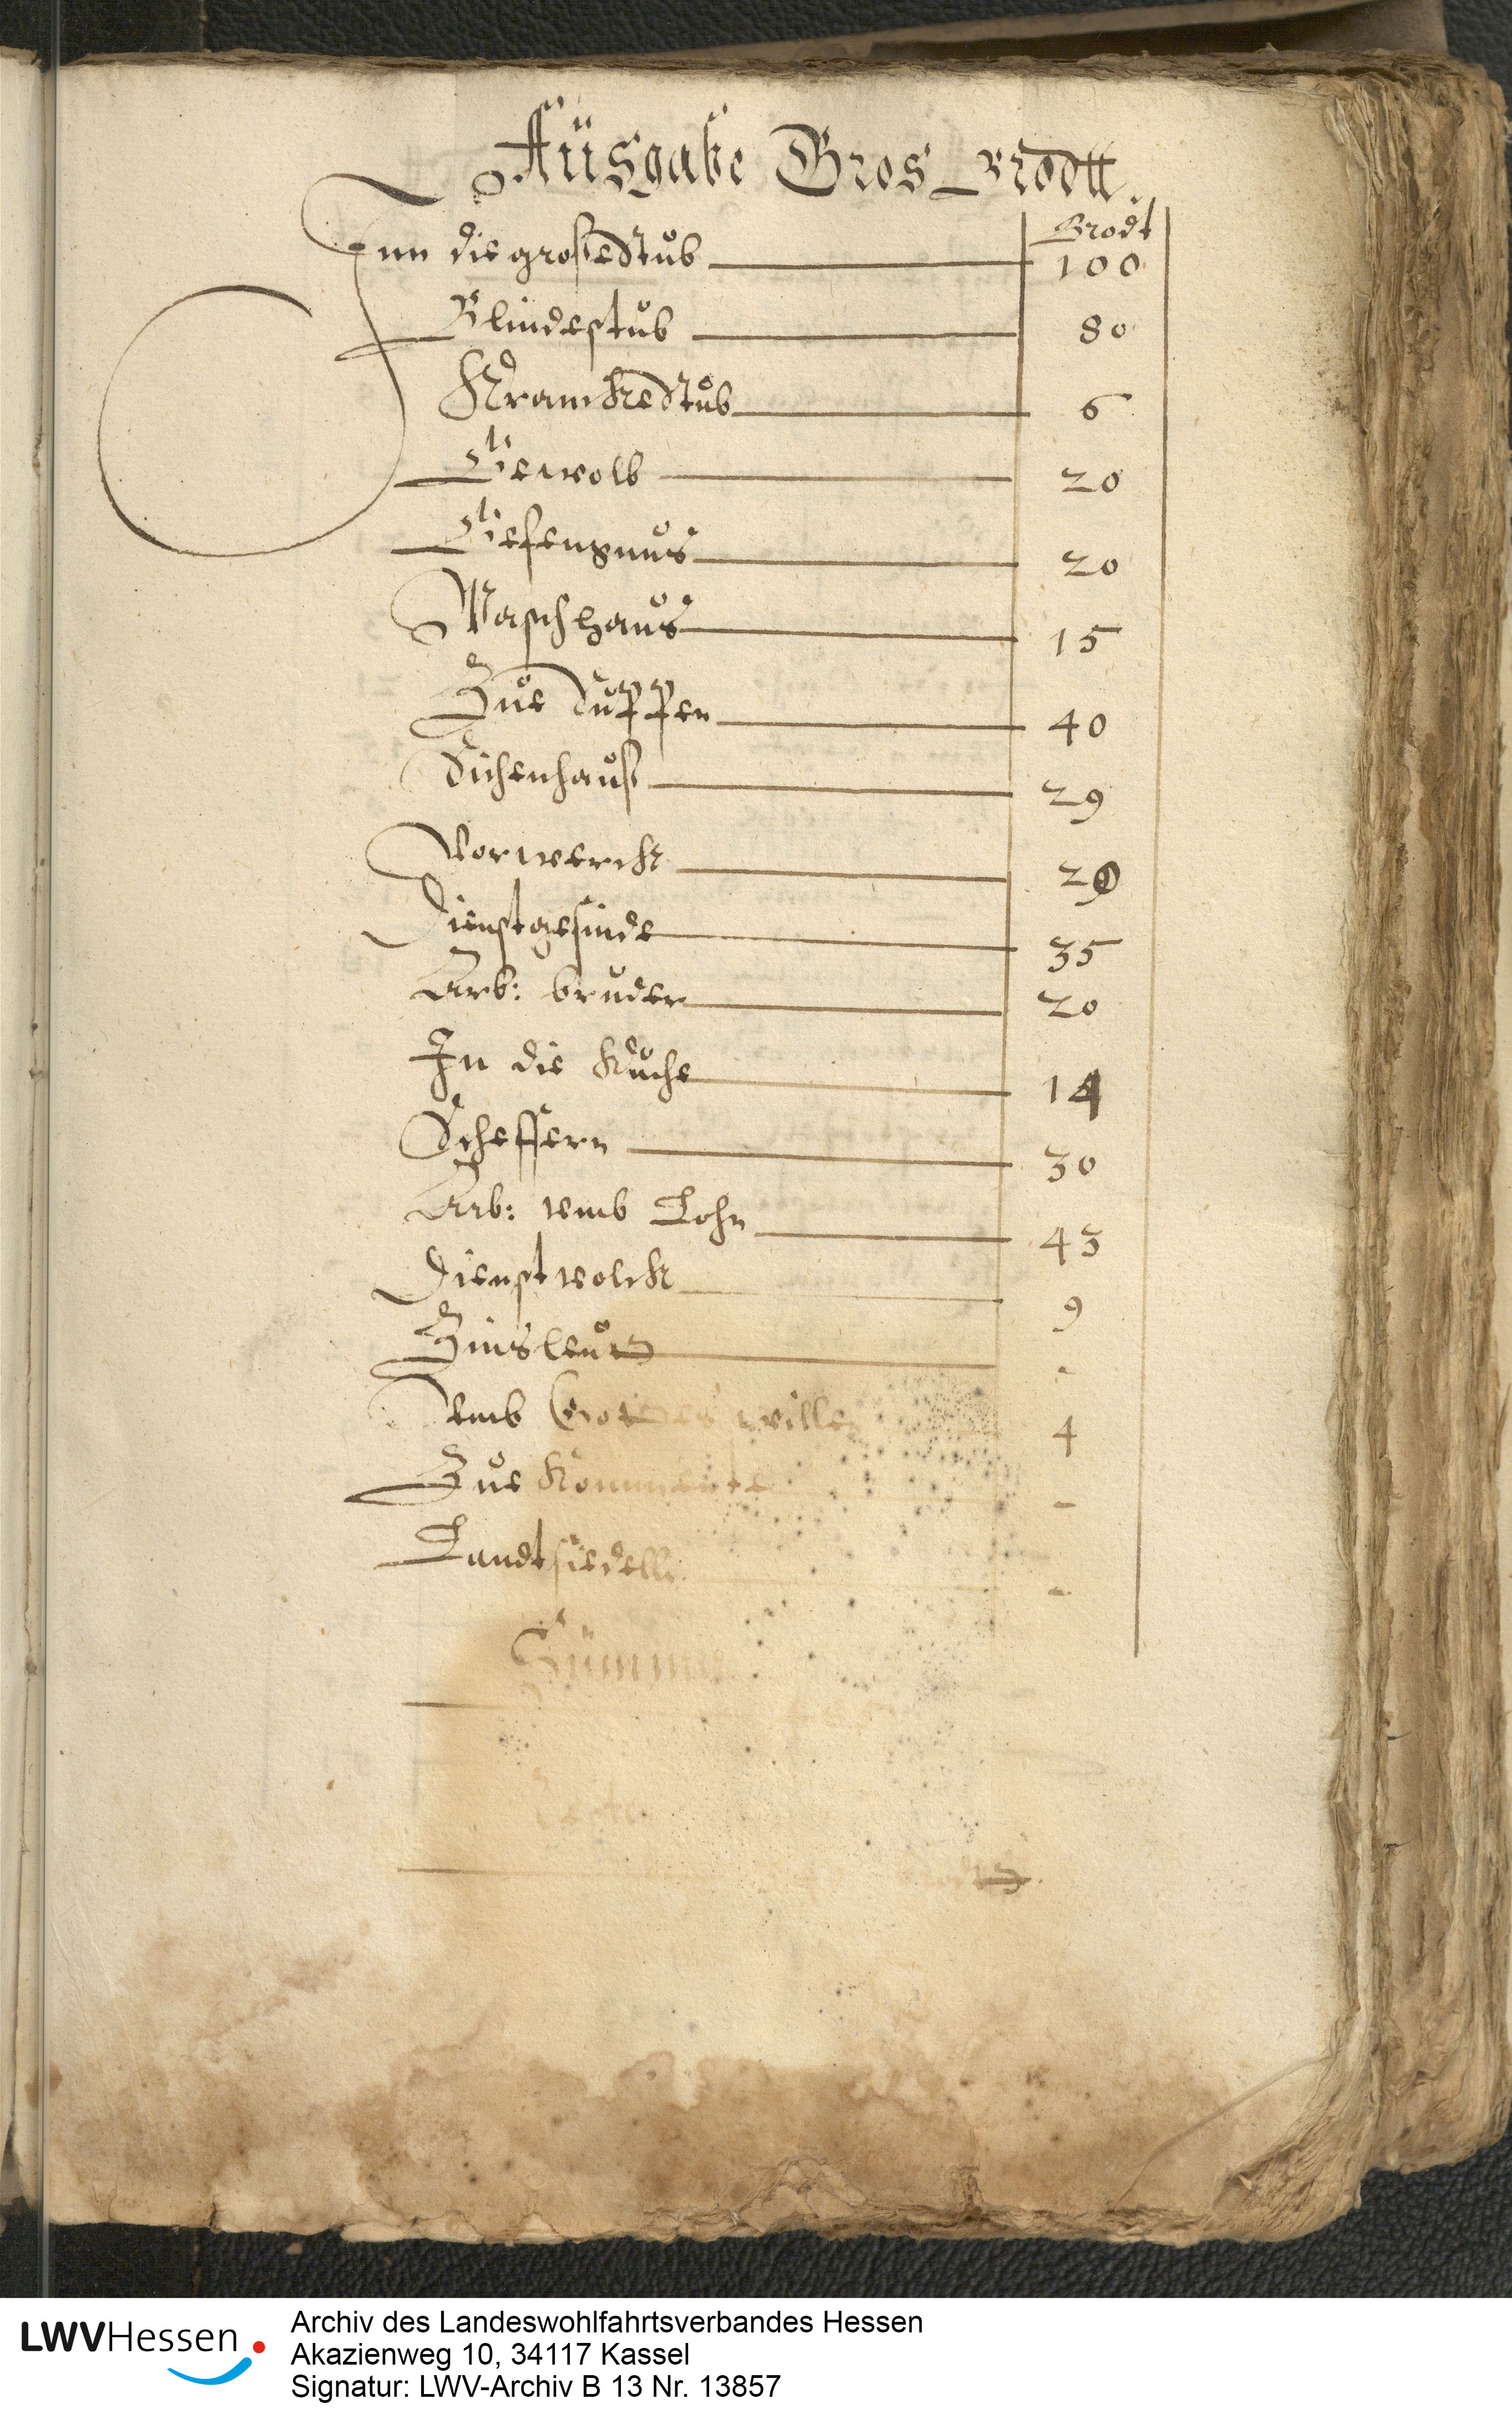 Ausgabe Gros Brodtt
Brodt
Inn die große Stub 100
Blindestub 80
Krancke Stub 6
Gewolb 20
Gefengnus 20
Waschhaus 15
Zue Suppen 40
Sichenhauß 29
Vorwerck 20
Dienstgesinde 35
Arb: bruder 20
In die Kuche 14
Scheffern 30
Arb: vmb Lohn 43
Dienstvolck 9
Zinsleut -
Vmb Gottes willen 4
Zue Konuente -
Landtsiedell -
Summa
LWVHessen
Archiv des Landeswohlfahrtsverbandes Hessen
Akazienweg 10, 34117 Kassel
Signatur: LWV-Archiv B 13 Nr. 13857